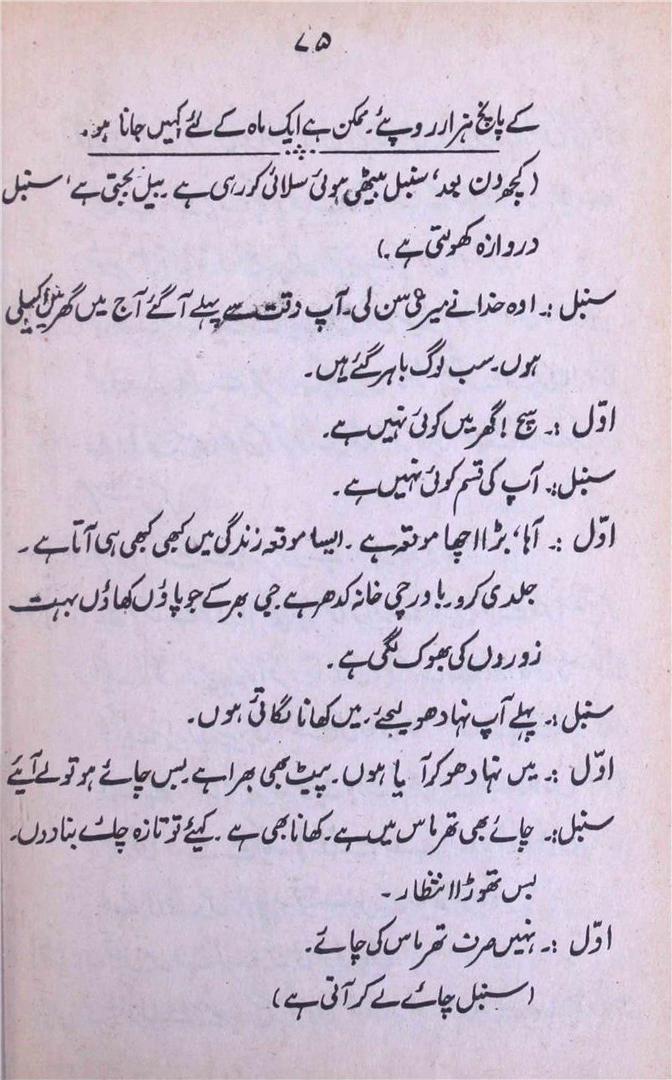 ۷۵
کے پانچ ہزار روپئے۔ ممکن ہے ایک ماہ کے لئے کہیں جانا ہو۔
(کچھ دن بعد، سنبل بیٹھی ہوئی سلائی کر رہی ہے۔ بیل بجتی ہے، سنبل
دروازہ کھولتی ہے۔)
سنبل :۔ اوہ خدا نے میری سن لی۔ آپ وقت سے پہلے آ گئے آج میں گھر میں اکیلی
ہوں۔ سب لوگ باہر گئے ہیں۔
اوّل :۔ سچ! گھر میں کوئی نہیں ہے۔
سنبل :۔ آپ کی قسم کوئی نہیں ہے۔
اوّل :۔ آہا، بڑا اچھا موقعہ ہے۔ ایسا موقعہ زندگی میں کبھی کبھی ہی آتا ہے۔
جلدی کرو۔ باورچی خانہ کدھر ہے جی بھر کے جو پاؤں کھاؤں بہت
زوروں کی بھوک لگی ہے۔
سنبل :۔ پہلے آپ نہا دھو لیجئے۔ میں کھانا لگاتی ہوں۔
اوّل :۔ میں نہا دھو کر آیا ہوں۔ پیٹ بھی بھرا ہے۔ بس چائے ہو تو لے آیئے
سنبل :۔ چائے بھی تھرماس میں ہے۔ کھانا بھی ہے۔ کہئے تو تازہ چائے بنا دوں۔
بس تھوڑا انتظار۔
اوّل :۔ نہیں صرف تھرماس کی چائے۔
(سنبل چائے لے کر آتی ہے)